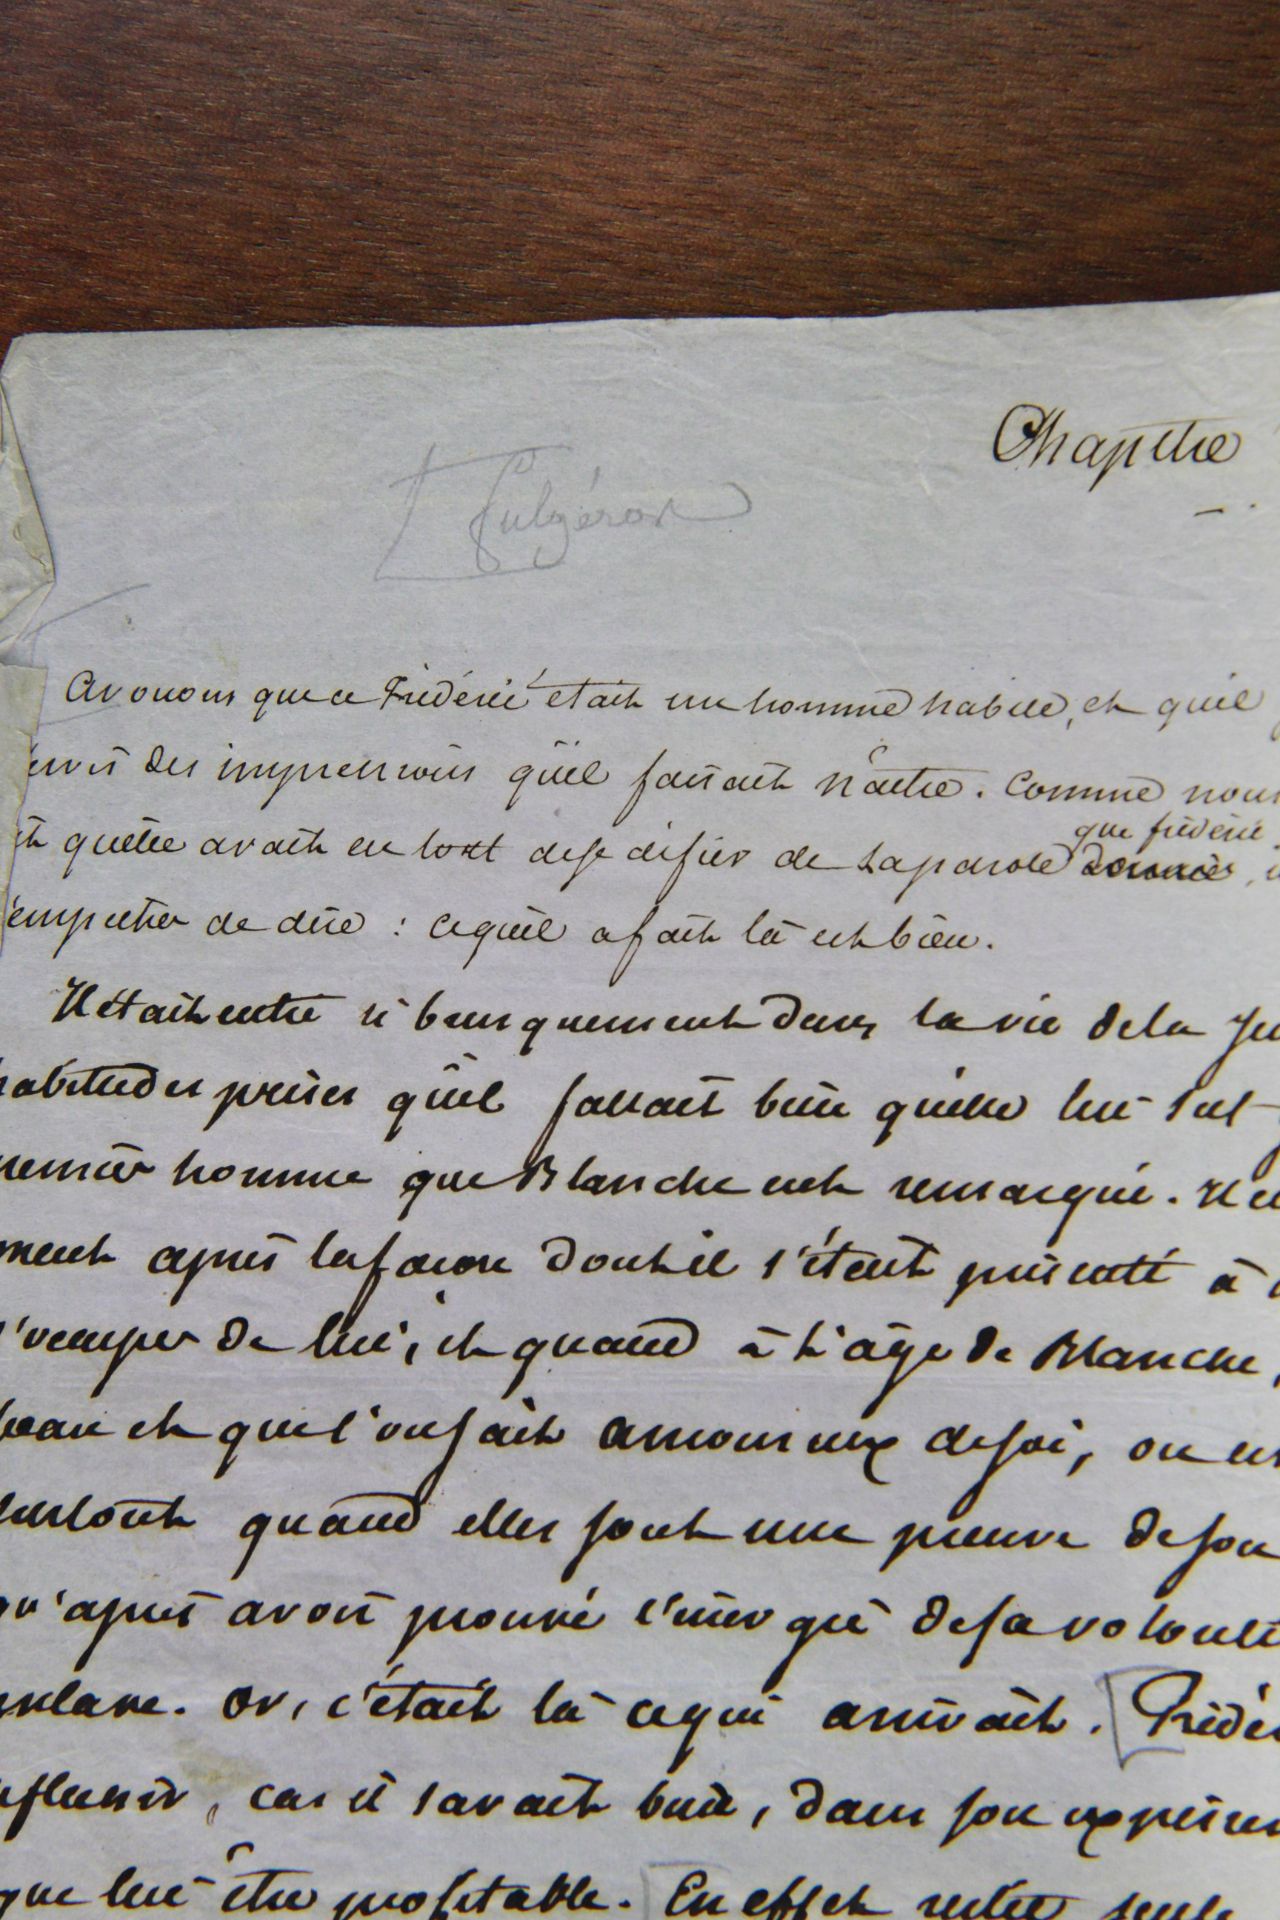 Chapitre
Fulgéron
Avouons que ce Frédéric était un homme habile, et qu'il
des impressions qu'il faisait naître. Comme nous
qu'elle avait eu tort de se défier de sa parole
que frédéric
empêcher de dire : ce qu'il a fait là est bien.
Il était entré si brusquement dans la vie de la
habitudes prises qu'il fallait bien qu'elle lui sut
premier homme que Blanche eut remarqué. Il
ment après la façon dont il s'était présenté à
s'occuper de lui, et quand à l'âge de Blanche,
beau et que l'on fait amoureux de soi, on
surtout quand elles sont une preuve de son
qu'après avoir prouvé l'énergie de sa volonté
esclave. Or, c'était là ce qui arrivait. Frédé
réfléchir, car il savait bien, dans son
que lui être profitable. En effet restée seule